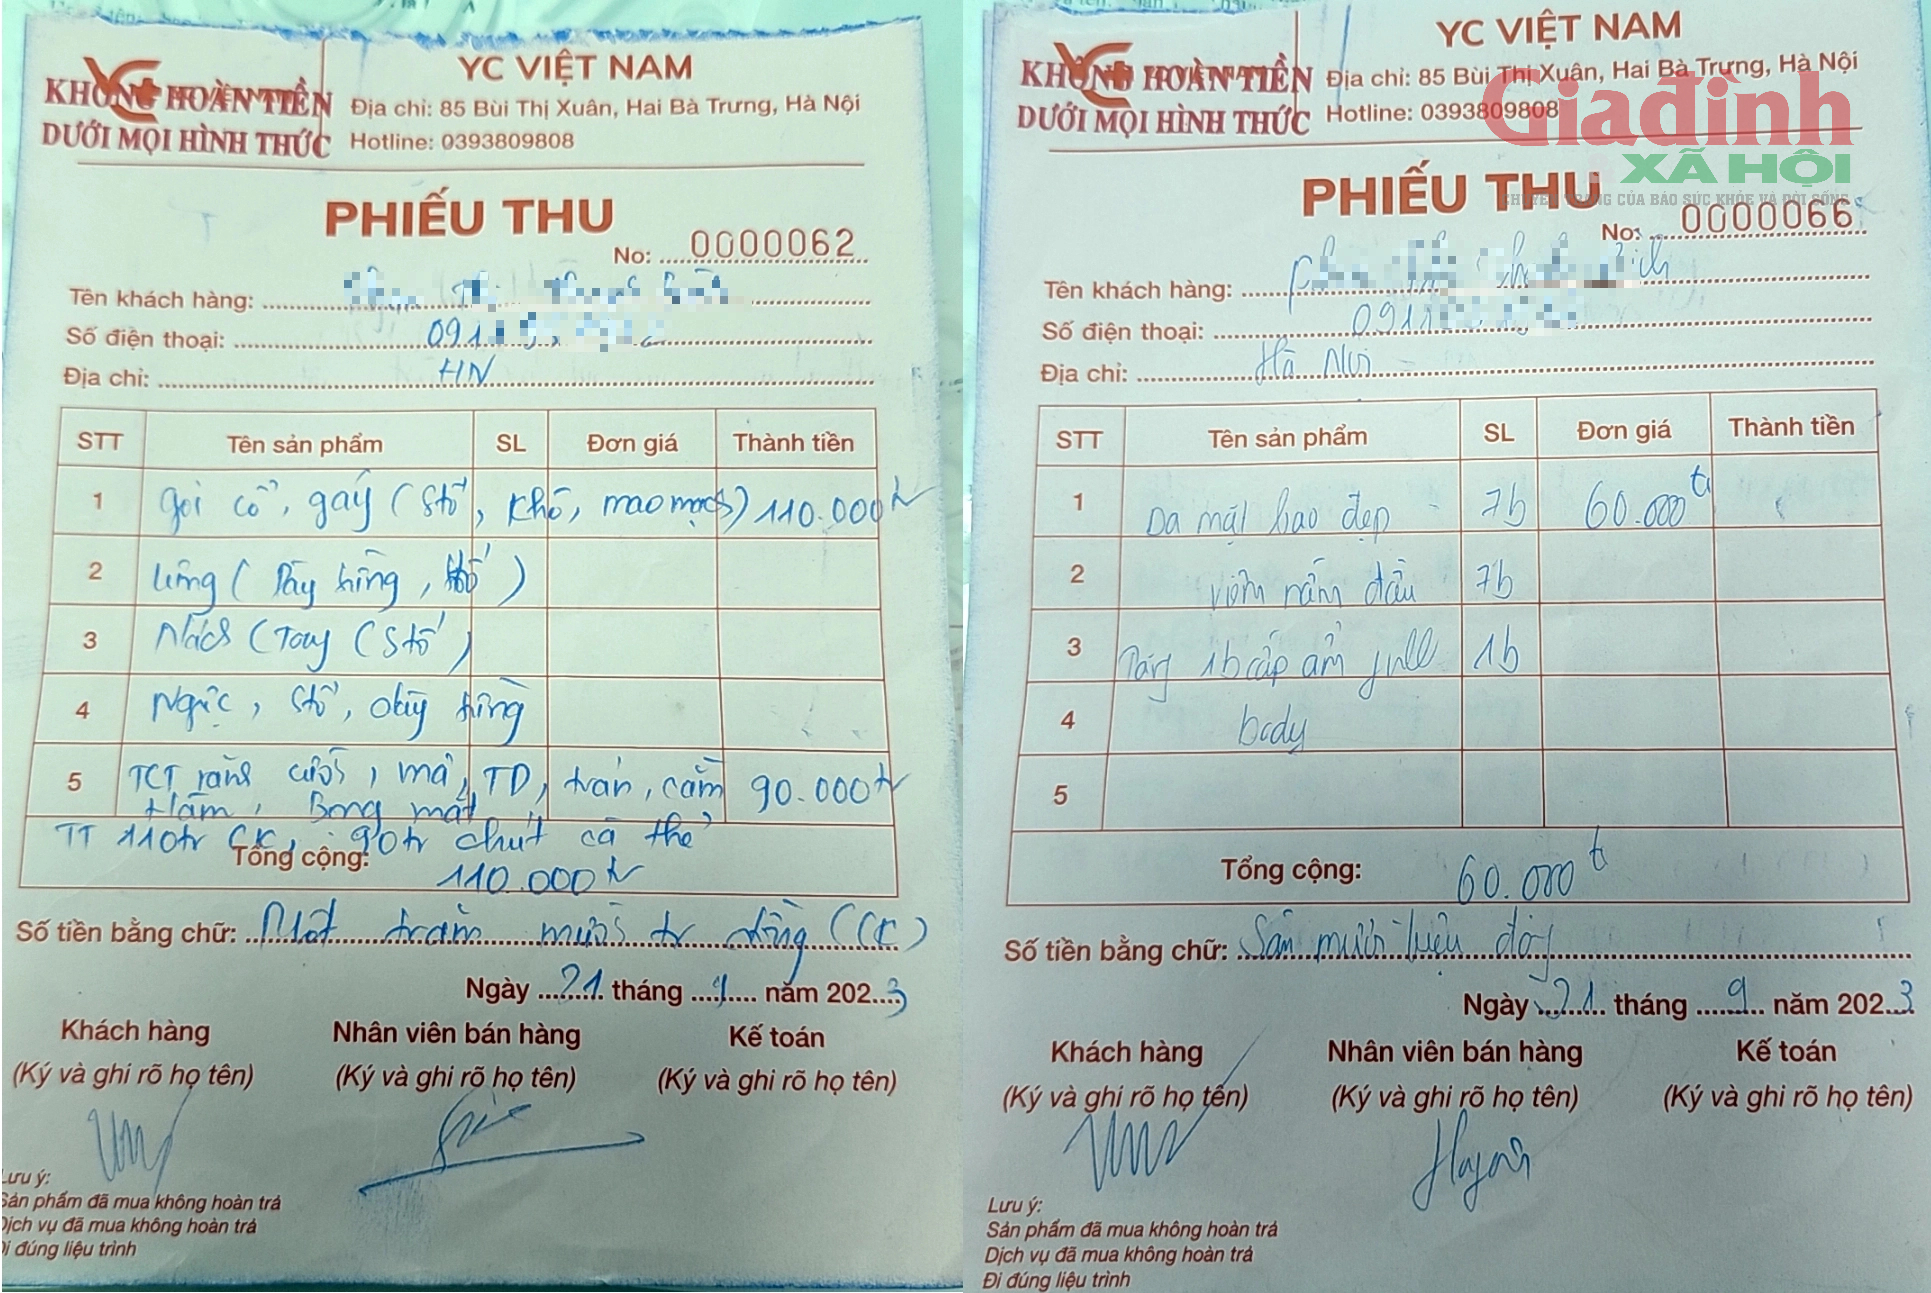 KHÔNG HOÀN TIỀN
DƯỚI MỌI HÌNH THỨC
YC VIỆT NAM
Địa chỉ: 85 Bùi Thị Xuân, Hai Bà Trưng, Hà Nội
Hotline: 0393809808
PHIẾU THU
No: 0000062
Tên khách hàng:
Số điện thoại: 091
Địa chỉ: HN
STT Tên sản phẩm SL Đơn giá Thành tiền
1 gói cổ, gáy (Stố, khô, mao mạch) 110.000tr
2 Lưng (Dày sừng, Stố)
3 Nách (Tay (Stố)
4 Ngực, Stố, dày sừng
5 TCT rãnh cười, má, TD, trán, cằm 90.000tr
thâm, Bọng mắt
TT 110tr CK, 90tr chút cà thẻ
Tổng cộng: 110.000tr
Số tiền bằng chữ: Một trăm mười tr đồng (CK)
Ngày 21 tháng 9 năm 2023
Khách hàng Nhân viên bán hàng Kế toán
(Ký và ghi rõ họ tên) (Ký và ghi rõ họ tên) (Ký và ghi rõ họ tên)
Lưu ý:
Sản phẩm đã mua không hoàn trả
Dịch vụ đã mua không hoàn trả
Đi đúng liệu trình
KHÔNG HOÀN TIỀN
DƯỚI MỌI HÌNH THỨC
YC VIỆT NAM
Địa chỉ: 85 Bùi Thị Xuân, Hai Bà Trưng, Hà Nội
Hotline: 0393809808
Giađình
XÃ HỘI
CHUYÊN TRANG CỦA BÁO SỨC KHỎE VÀ ĐỜI SỐNG
PHIẾU THU
No: 0000066
Tên khách hàng:
Số điện thoại: 0911
Địa chỉ: Hà Nội
STT Tên sản phẩm SL Đơn giá Thành tiền
1 Da mặt bao đẹp 7b 60.000t
2 viêm nấm đầu 7b
3 Tặng 1b cấp ẩm full 1b
4 body
5
Tổng cộng: 60.000t
Số tiền bằng chữ: Sáu mươi triệu đồng
Ngày 21 tháng 9 năm 2023
Khách hàng Nhân viên bán hàng Kế toán
(Ký và ghi rõ họ tên) (Ký và ghi rõ họ tên) (Ký và ghi rõ họ tên)
Lưu ý:
Sản phẩm đã mua không hoàn trả
Dịch vụ đã mua không hoàn trả
Đi đúng liệu trình